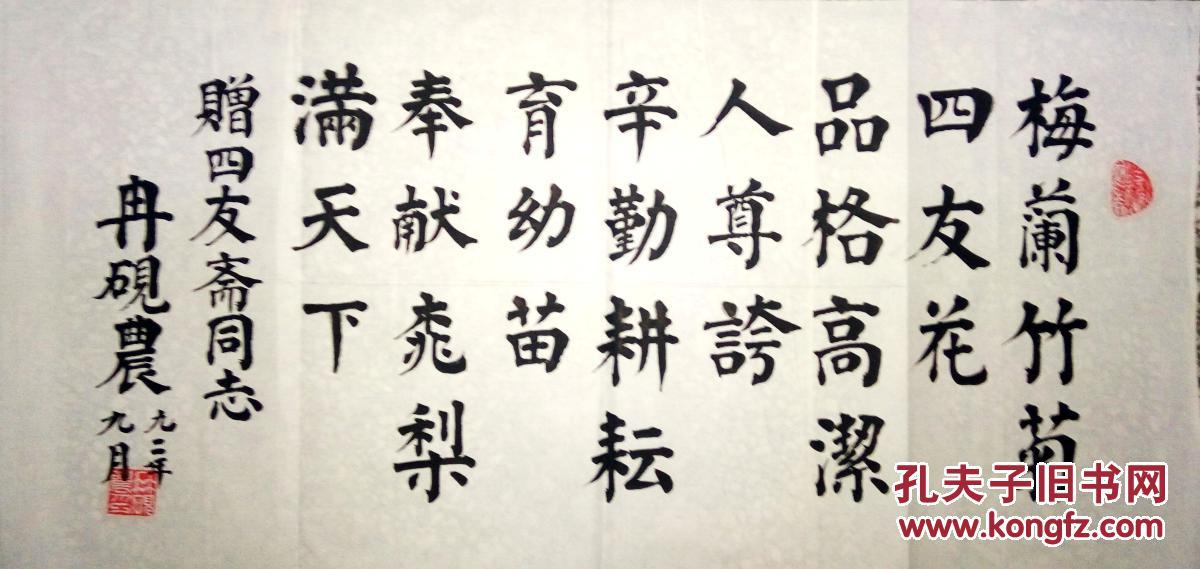 梅蘭竹菊
四友花
品格高潔
人尊誇
辛勤耕耘
育幼苗
奉献桃梨
满天下
贈四友斋同志
冉硯農
九三年
九月
孔夫子旧书网
www.kongfz.com